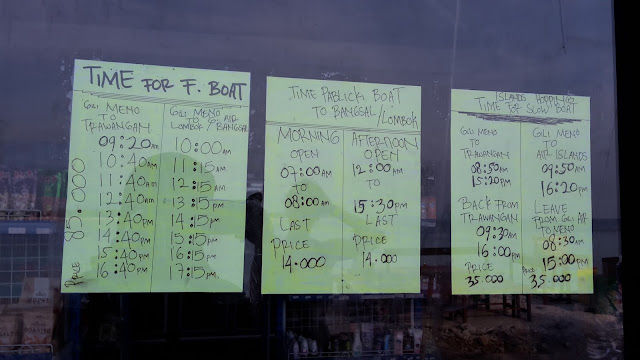 TIME FOR F. BOAT
GILI MENO
TO
TRAWANGAN
09:20AM
10:40AM
11:40AM
12:40AM
13:40PM
14:40PM
15:40PM
16:40PM
PRICE 85.000
GILI MENO
TO AIR
LOMBOK/BANGSAL
10:00AM
11:15AM
12:15AM
13:15PM
14:15PM
15:15PM
16:15PM
17:15PM
TIME PABLICK BOAT
TO BANGSAL/LOMBOK
MORNING
OPEN
07:00AM
TO
08:00AM
LAST
PRICE
14.000
AFTERNOON
OPEN
12:00AM
TO
15:30PM
LAST
PRICE
14.000
ISLANDS HOPPING
TIME FOR SLOW BOAT
GILI MENO
TO
TRAWANGAN
08:50AM
15:20PM
BACK FROM
TRAWANGAN
09:30AM
16:00PM
PRICE
35.000
GILI MENO
TO
AIR ISLANDS
09:50AM
16:20PM
LEAVE
FROM GILI AIR
TO MENO
08:30AM
15:00PM
PRICE
35.000